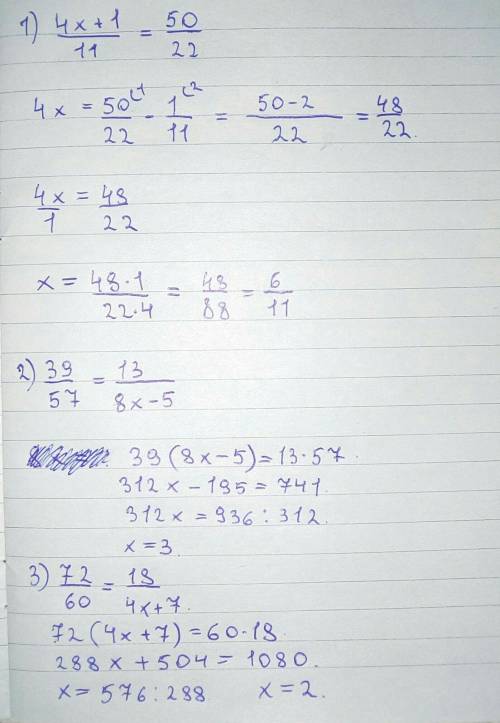 1) (4x+1)/11 = 50/22
4x = 50⌞1/22 - 1⌞2/11 = (50-2)/22 = 48/22.
4x/1 = 48/22
x = (48·1)/(22·4) = 48/88 = 6/11
2) 39/57 = 13/(8x-5)
39(8x-5)=13·57.
312x-195=741.
312x=936:312.
x=3.
3) 72/60 = 18/(4x+7).
72(4x+7)=60·18.
288x+504=1080.
x=576:288 x=2.